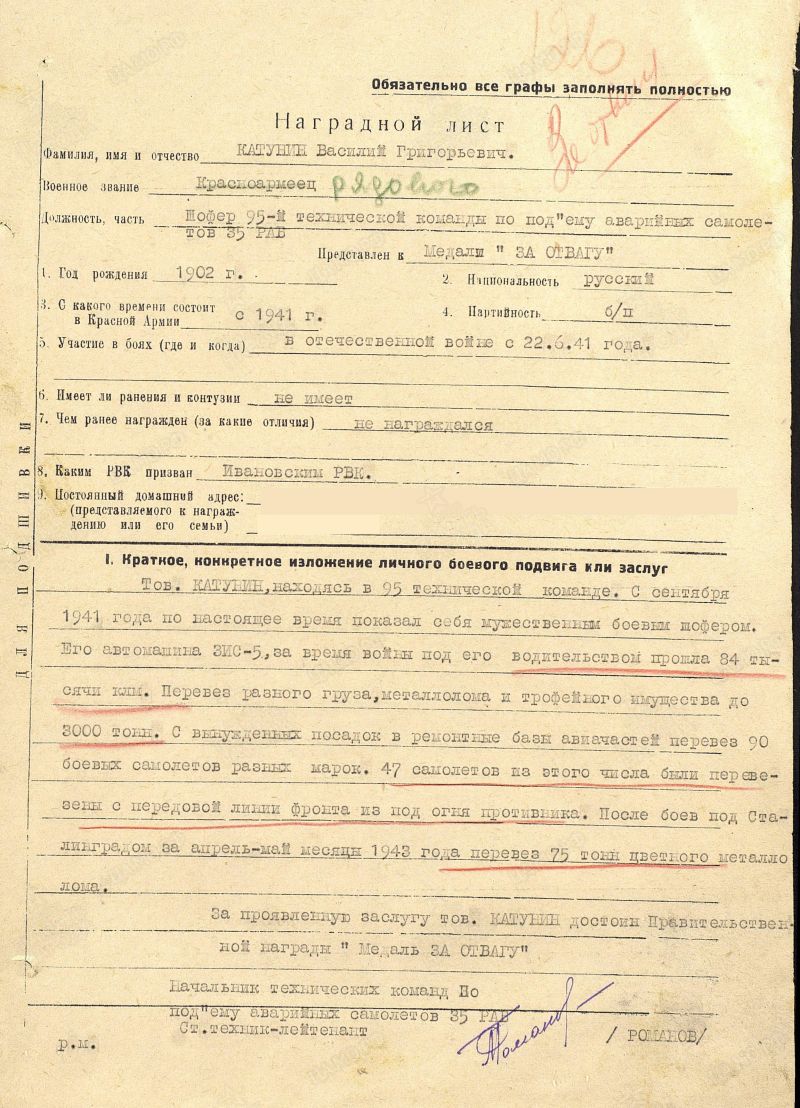 126
Обязательно все графы заполнять полностью
За отвагу
Наградной лист
Фамилия, имя и отчество КАТУНИН Василий Григорьевич.
Военное звание Красноармеец рядового
Должность, часть Шофер 95-й технической команды по под"ему аварийных самоле-
тов 35 РАБ
Представлен к Медали " ЗА ОТВАГУ"
1. Год рождения 1902 г. 2. Национальность русский
3. С какого времени состоит
в Красной Армии с 1941 г. 4. Партийность б/п
5. Участие в боях (где и когда) в отечественной войне с 22.6.41 года.
6. Имеет ли ранения и контузии не имеет
7. Чем ранее награжден (за какие отличия) не награждался
8. Каким РВК призван Ивановским РВК.
9. Постоянный домашний адрес:
(представляемого к награж-
дению или его семьи)
ДЛЯ ПОДШИВКИ
I. Краткое, конкретное изложение личного боевого подвига или заслуг
Тов. КАТУНИН, находясь в 95 технической команде. С сентября
1941 года по настоящее время показал себя мужественным боевым шофером.
Его автомашина ЗИС-5, за время войны под его водительством прошла 84 ты-
сячи клм. Перевез разного груза, металлолома и трофейного имущества до
3000 тонн. С вынужденных посадок в ремонтные базы авиачастей перевез 90
боевых самолетов разных марок. 47 самолетов из этого числа были переве-
зены с передовой линии фронта из под огня противника. После боев под Ста-
линградом за апрель-май месяцы 1943 года перевез 75 тонн цветного металло
лома.
За проявленную заслугу тов. КАТУНИН достоин Правительствен-
ной награды " Медаль ЗА ОТВАГУ"
Начальник технических команд По
под"ему аварийных самолетов 35 РАБ
Ст.техник-лейтенант
р.м. / РОМАНОВ/